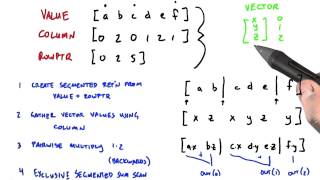 VALUE [ a b c d e f ]
COLUMN [ 0 2 0 1 2 1 ]
ROWPTR [ 0 2 5 ]
VECTOR
[ x 0
y 1
z ] 2
1 CREATE SEGMENTED REP'N FROM
VALUE + ROWPTR
2 GATHER VECTOR VALUES USING
COLUMN
3 PAIRWISE MULTIPLY 1·2
(BACKWARDS)
4 EXCLUSIVE SEGMENTED SUM SCAN
[ a b | c d e | f ]
[ x z x y z y ]
[ ax bz | cx dy ez | fy ]
OUT(0) OUT(1) OUT(2)